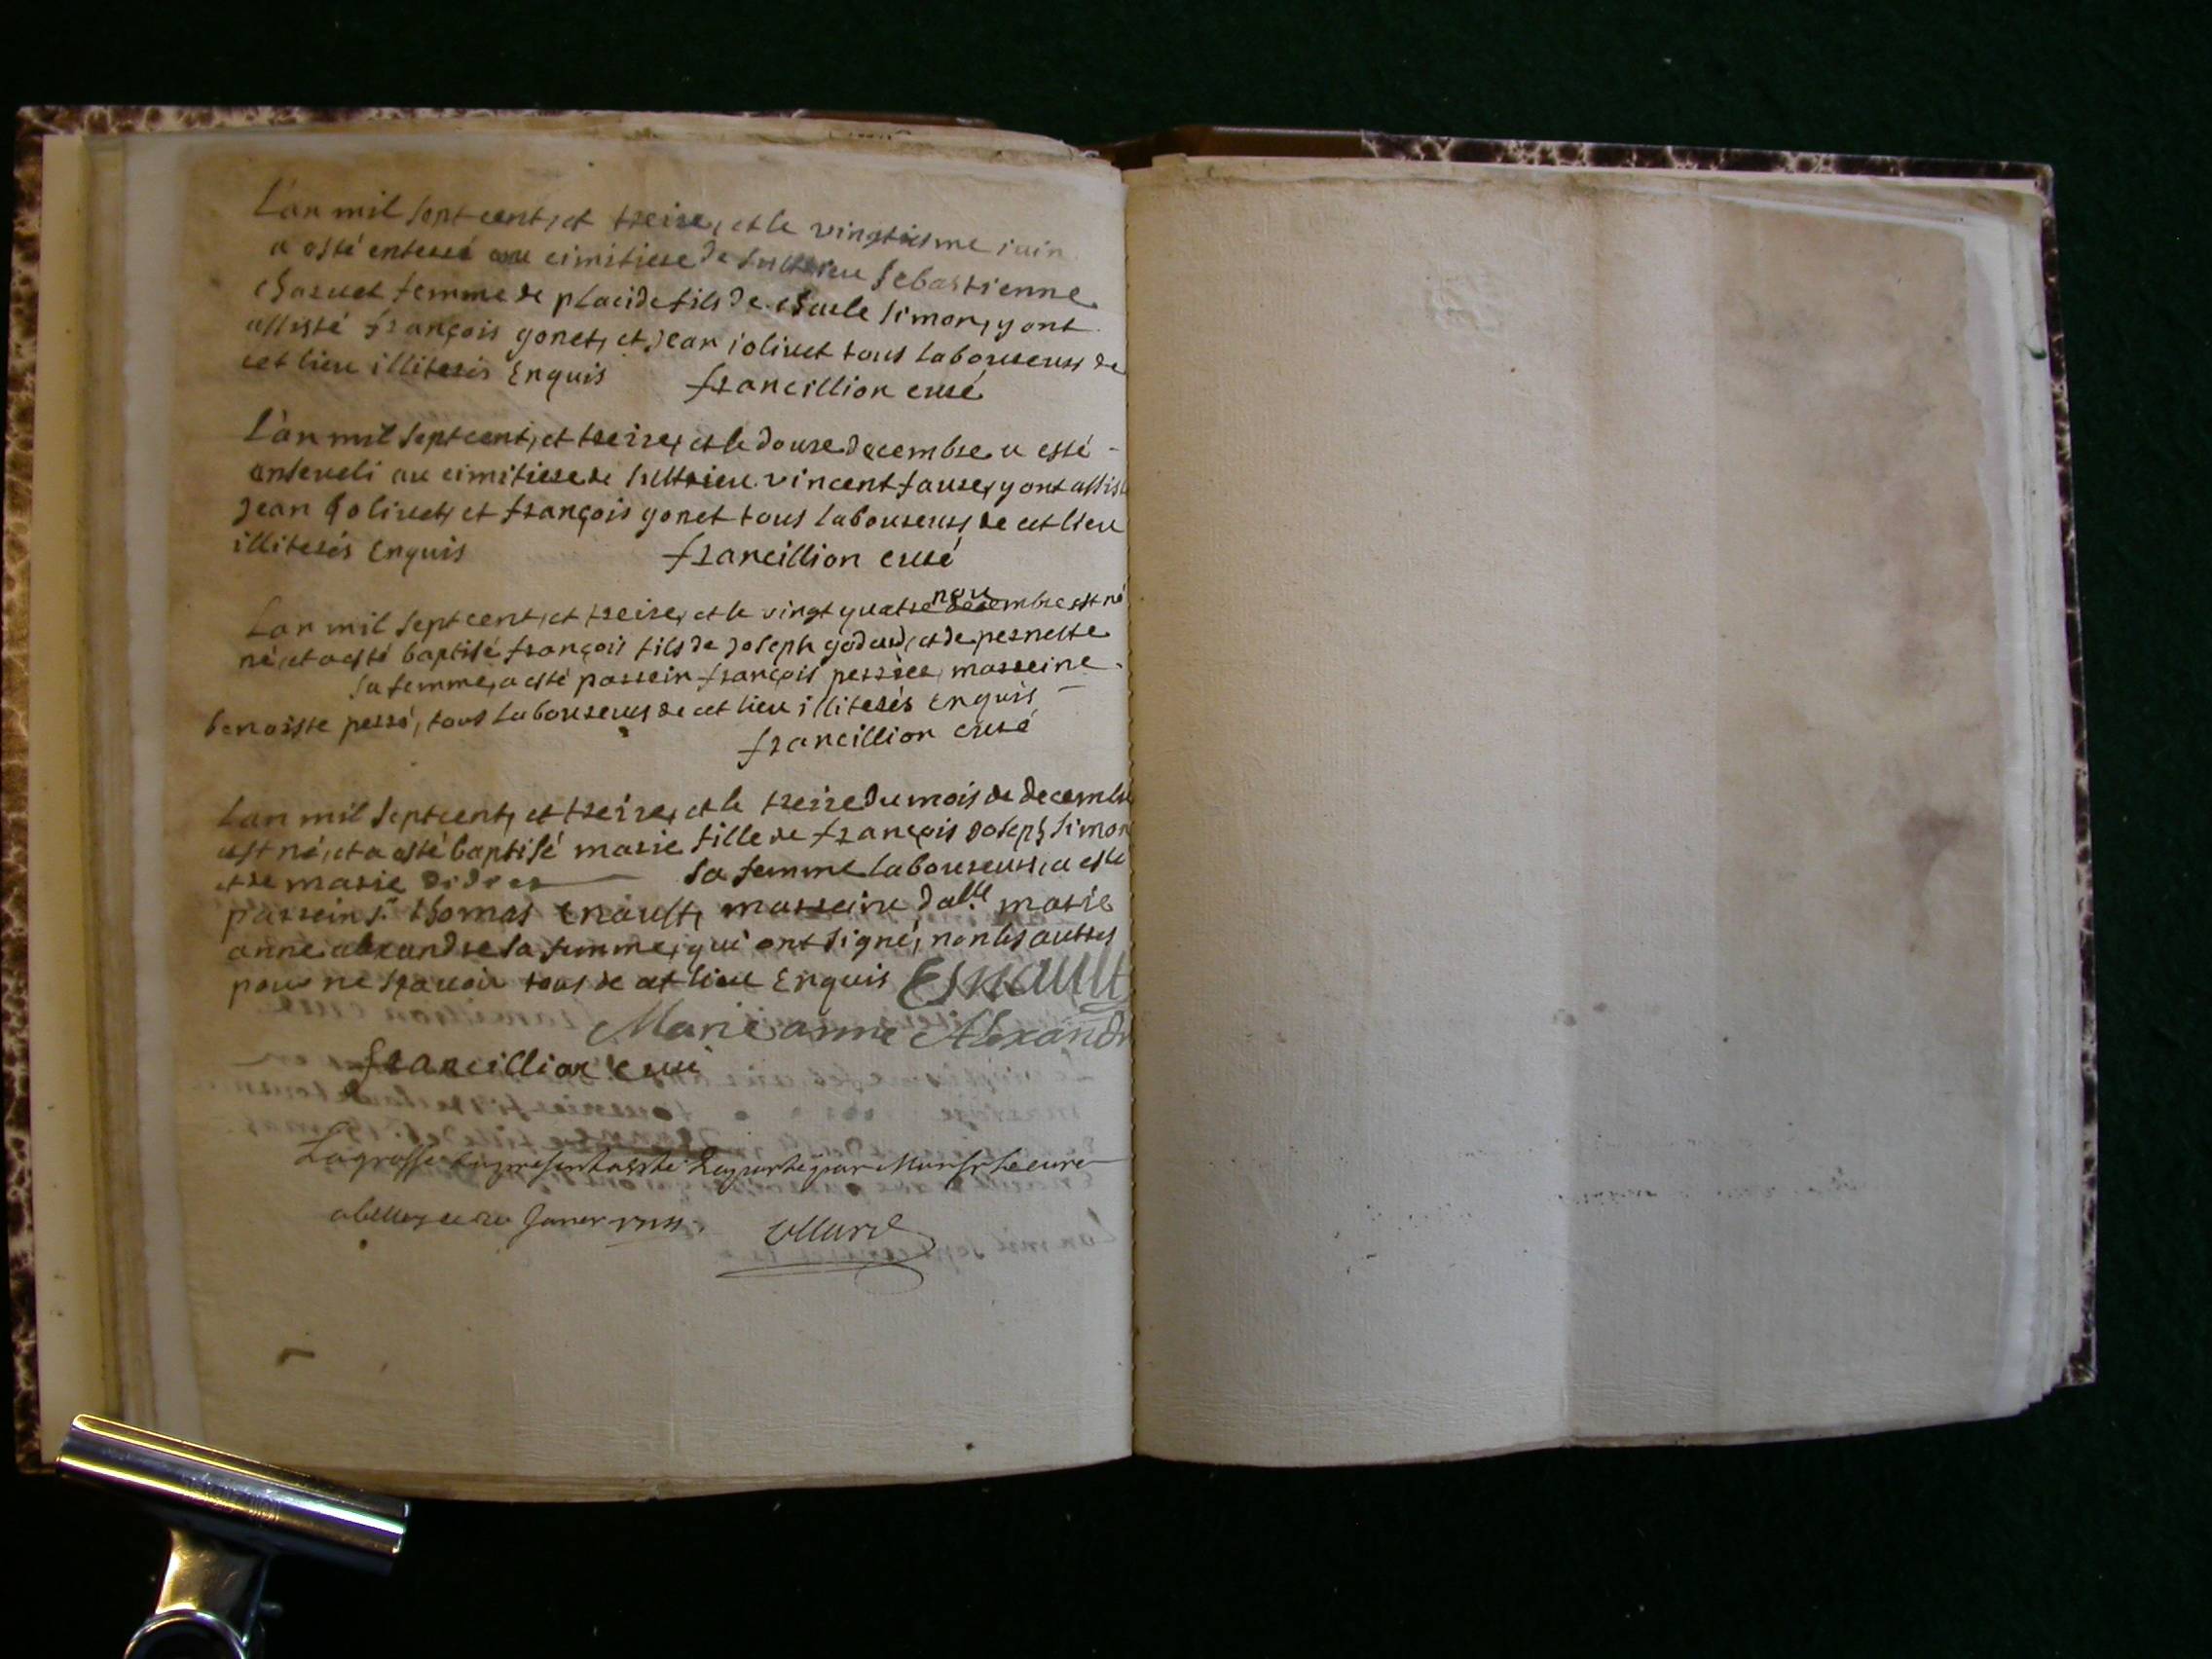 L'an mil sept cent, et treize, et le vingtiesme iuin
a esté enterré au cimitiere de Sutrieu Sebastienne
femme de placide fils de Simon, y ont
assisté françois gonet, et Jean iolivet tous laboureurs de
cet lieu illiterés Enquis francillion curé
L'an mil sept cent, et treize, et le douze decembre a esté
enseveli au cimitiere de Sutrieu vincent faure, y ont assis
Jean Jolivet, et françois gonet tous laboureurs de cet lieu
illiterés Enquis francillion curé
L'an mil sept cent, et treize, et le vingt quatre nov decembre est né
né, et a esté baptisé françois fils de Joseph godard, et de pernette
sa femme, a esté parrein françois perrée, marreine
benoiste perré, tous laboureurs de cet lieu illiterés Enquis
francillion curé
L'an mil sept cent, et treize, et le treize du mois de decembre
est né, et a esté baptisé marie fille de françois Joseph Simon
et de marie didier sa femme laboureurs, a esté
parrein sr thomas Enault, marreine dalle marie
anne alexandre sa femme, qui ont signé, non les autres
pour ne sçavoir tous de cet lieu Enquis Esnault
Marie anne Alexandr
francillion curé
La grosse du present a esté Raportée par Monsr le cure
a belley ce 20 Janer 1714